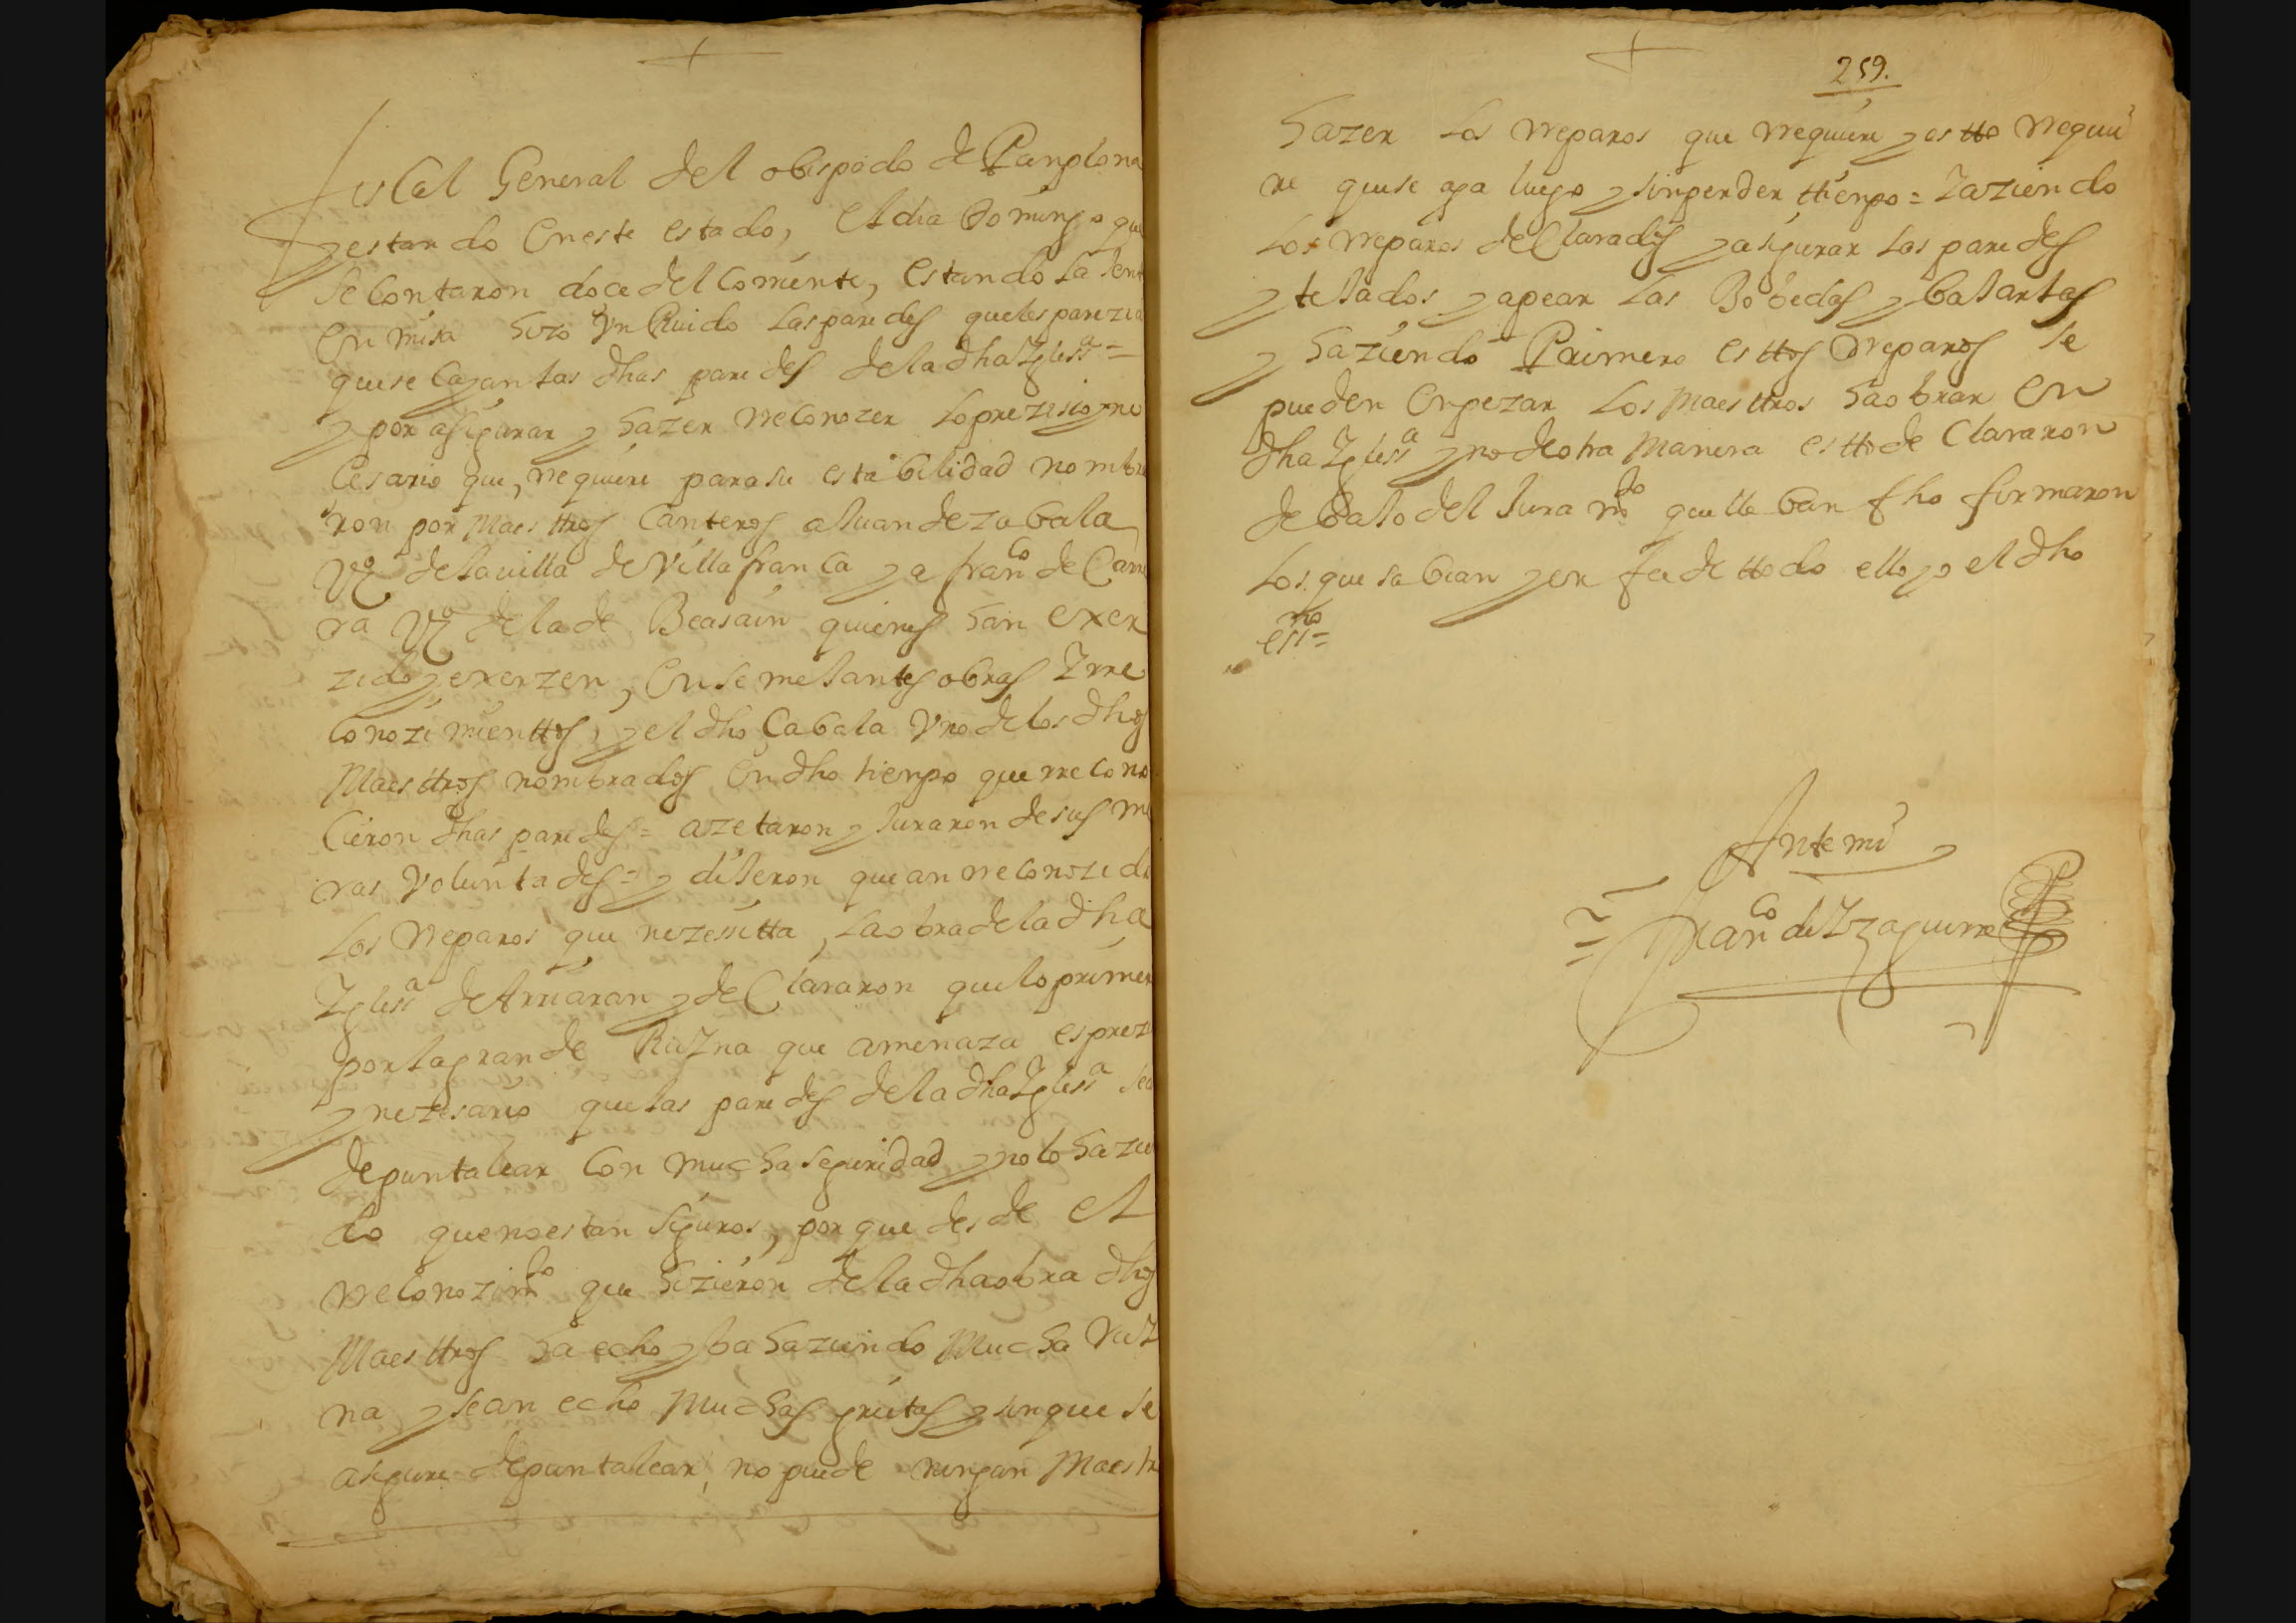 fiscal General del obispado de Panplona
y estando en este estado, el dia Domingo que
se contaron doce del corriente, estando la Jent
en misa hizo Vn Ruido las paredes que les parezia
que se cayan las dhas paredes de la dha Yglessª =
y por asigurar y hazer rreconozer lo preziso y ne
cesario que, rrequiere para su estabilidad nombra
ron por Maesttros Canteros a Juan de zabala
Vº de la villa de Villafranca y a franco de Carre
ra Vº de la de Beasain quienes han exer
zido y exerzen, en semejantes obras Y rre
conozimienttos, y el dho Çabala Vno de los dhos
Maesttros nombrados en dho tienpo que rrecono
cieron dhas paredes = azetaron y Juraron de sus me
ras Voluntades = y dijeron que an rreconozido
los rreparos que nezesitta, la obra de la dha
Yglessª de Arriaran y de Clararon que lo primer
por la grande Ruyna que amenaza es prezi
y nezesario que las paredes de la dha Yglessª sea
depuntalear con mucha seguridad y no lo hazien
do que no estan siguros, porque desde el
rreconozimto que hizieron de la dha obra dhos
Maesttros ha echo y ba haziendo Mucha Ruy
na y sean echo Muchas grietas y sin que se
asigure depuntalear, no puede ningun Maestro
259.
hazer los rreparos que rrequiere y estto rrequie
re que se aga luego y sin perder ttienpo = Yaziendo
los rreparos de Clarados y asigurar las paredes
y tejados y apear las Bobedas y balartas
y haziendo Primero esttos rreparos se
pueden enpezar los Maesttros ha obrar en
dha Yglessª y no de otra Manera estto de Clararon
debajo del Juramto que lleban fho firmaron
los que sabian y en fee de ttodo ello yo el dho
essno =
Ante mi
Franco de Yzaguirre